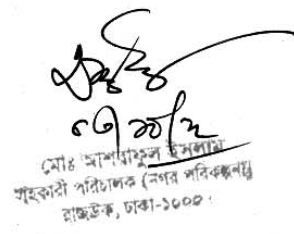 মোঃ আশরাফুল ইসলাম
সহকারী পরিচালক (নগর পরিকল্পনা)
রাজউক, ঢাকা-১০০০।